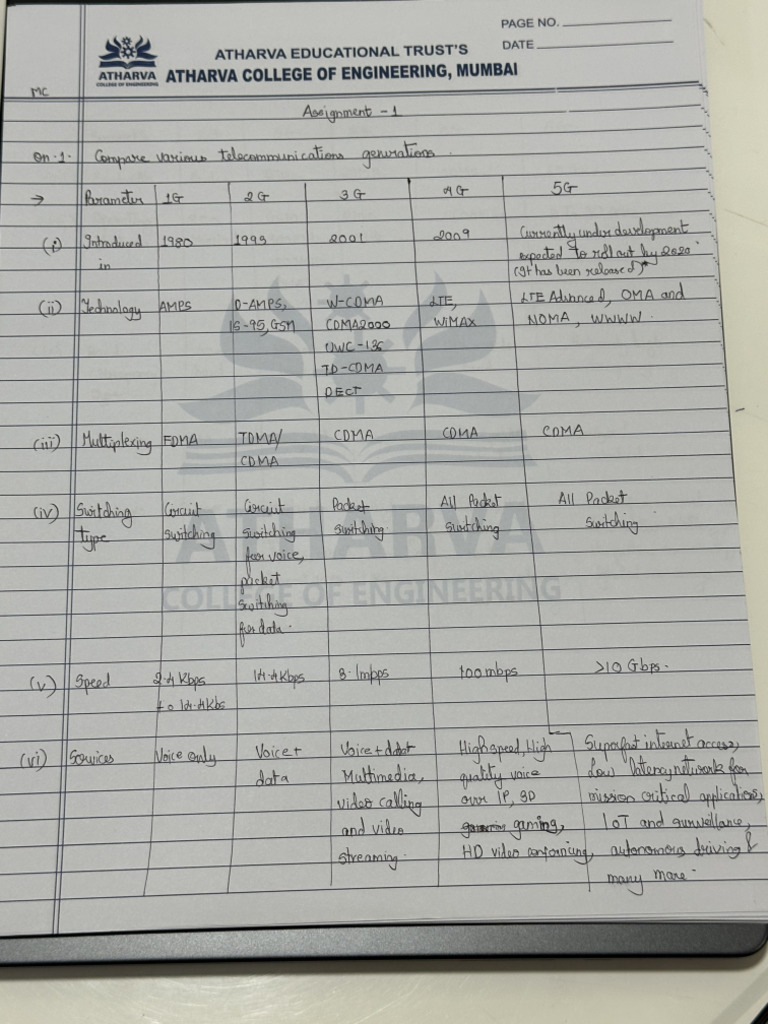 PAGE NO.
DATE
ATHARVA
COLLEGE OF ENGINEERING
ATHARVA EDUCATIONAL TRUST'S
ATHARVA COLLEGE OF ENGINEERING, MUMBAI
MC
Assignment - 1
Qn.1. Compare various telecommunications generations.
→ Parameter 1G 2G 3G 4G 5G
(i) Introduced in 1980 1993 2001 2009 Currently under development
expected to roll out by 2020
(It has been released)*
(ii) Technology AMPS D-AMPS, W-CDMA LTE, LTE Advanced, OMA and
IS-95, GSM CDMA2000 WiMAX NOMA, WWWW.
UWC-136
TD-CDMA
DECT
(iii) Multiplexing FDMA TDMA/ CDMA CDMA CDMA
CDMA
(iv) Switching Circuit Circuit Packet All Packet All Packet
type switching switching switching switching switching
for voice,
packet
switching
for data.
ATHARVA
COLLEGE OF ENGINEERING
(v) Speed 2.4 Kbps 14.4 Kbps 3.1mpps 100mbps >10 Gbps.
to 14.4Kbs
(vi) Services Voice only Voice+ Voice+data High speed, High Superfast internet access,
data Multimedia, quality voice Low latency network for
video calling over IP, 3D mission critical applications,
and video gaming, IoT and surveillance,
streaming. HD video conferencing, autonomous driving &
many more.